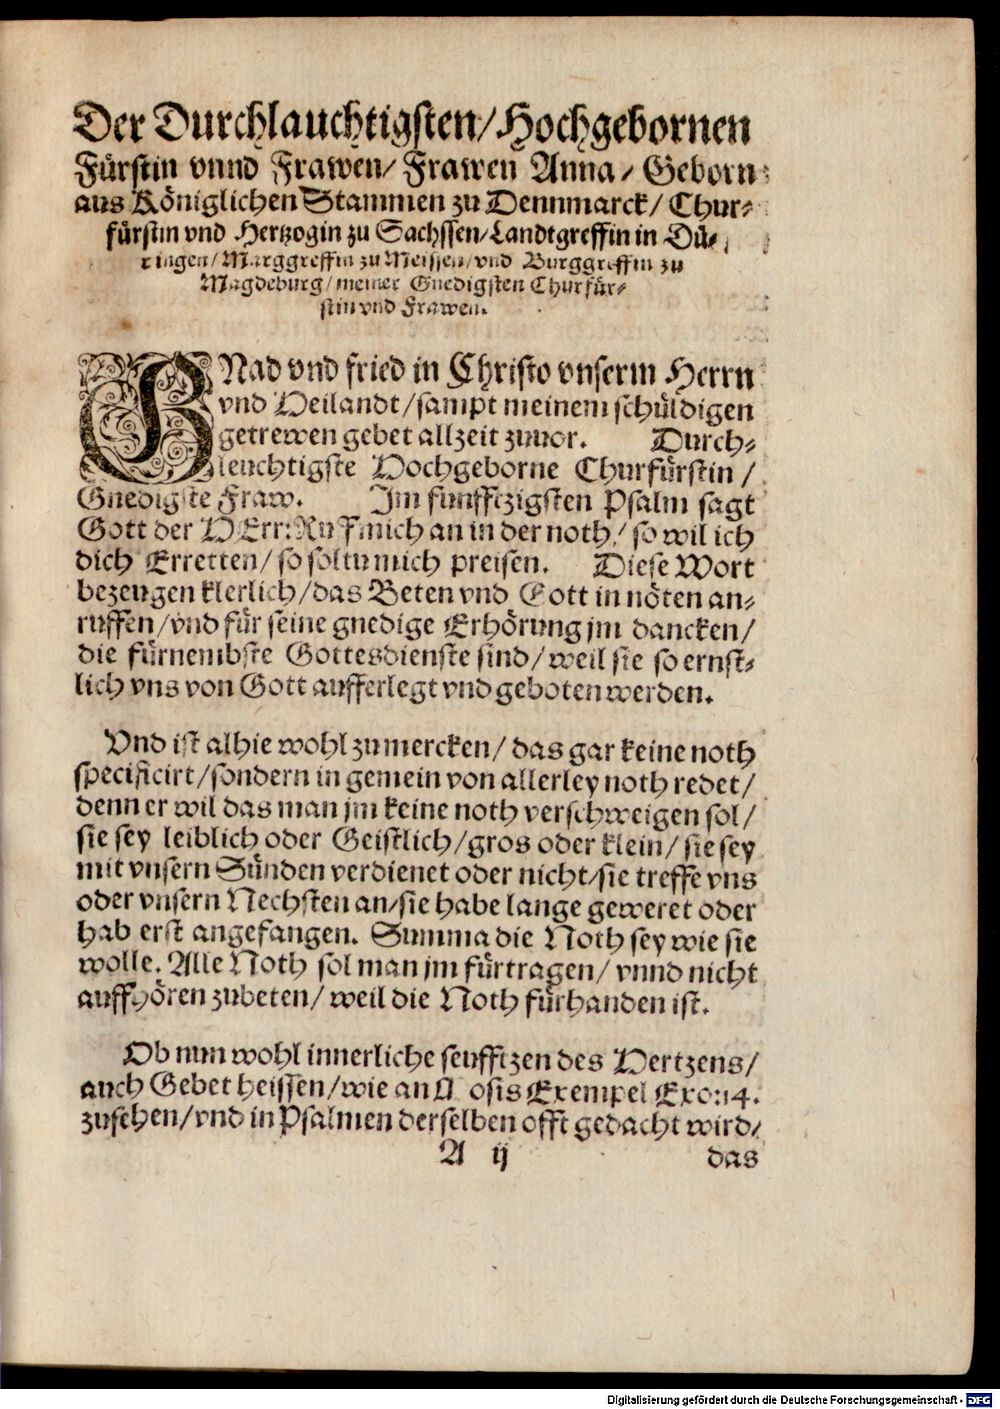 Der Durchlauchtigsten/Hochgebornen
Fürstin vnnd Frawen/ Frawen Anna/ Geborn
aus Königlichen Stammen zu Dennmarck/ Chur-
fürstin vnd Hertzogin zu Sachssen/Landtgreffin in Dü-
ringen/Marggreffin zu Meissen/vnd Burggreffin zu
Magdeburg/meiner Gnedigsten Churfür-
stin vnd Frawen.
GNad vnd fried in Christo vnserm Herrn
vnd Heilandt/sampt meinem schüldigen
getrewen gebet allzeit zuuor. Durch-
leuchtigste Hochgeborne Churfürstin/
Gnedigste Fraw. Im funfftzigsten Psalm sagt
Gott der HErr:Ruff mich an in der noth/ so wil ich
dich Erretten/so soltu mich preisen. Diese Wort
bezeugen klerlich/das Beten vnd Gott in nöten an-
ruffen/vnd für seine gnedige Erhörung jm dancken/
die fürnembste Gottesdienste sind/weil sie so ernst-
lich vns von Gott aufferlegt vnd geboten werden.
Vnd ist alhie wohl zumercken/das gar keine noth
specificirt/sondern in gemein von allerley noth redet/
denn er wil das man jm keine noth verschweigen sol/
sie sey leiblich oder Geistlich/gros oder klein/sie sey
mit vnsern Sünden verdienet oder nicht/sie treffe vns
oder vnsern Nechsten an/sie habe lange geweret oder
hab erst angefangen. Summa die Noth sey wie sie
wolle. Alle Noth sol man jm fürtragen/ vnnd nicht
auffhören zubeten/weil die Noth fürhanden ist.
Ob nun wohl innerliche seufftzen des Hertzens/
auch Gebet heissen/wie an Mosis Exempel Exo:14.
zusehen/vnd in Psalmen derselben offt gedacht wird/
A ij das
Digitalisierung gefördert durch die Deutsche Forschungsgemeinschaft - DFG